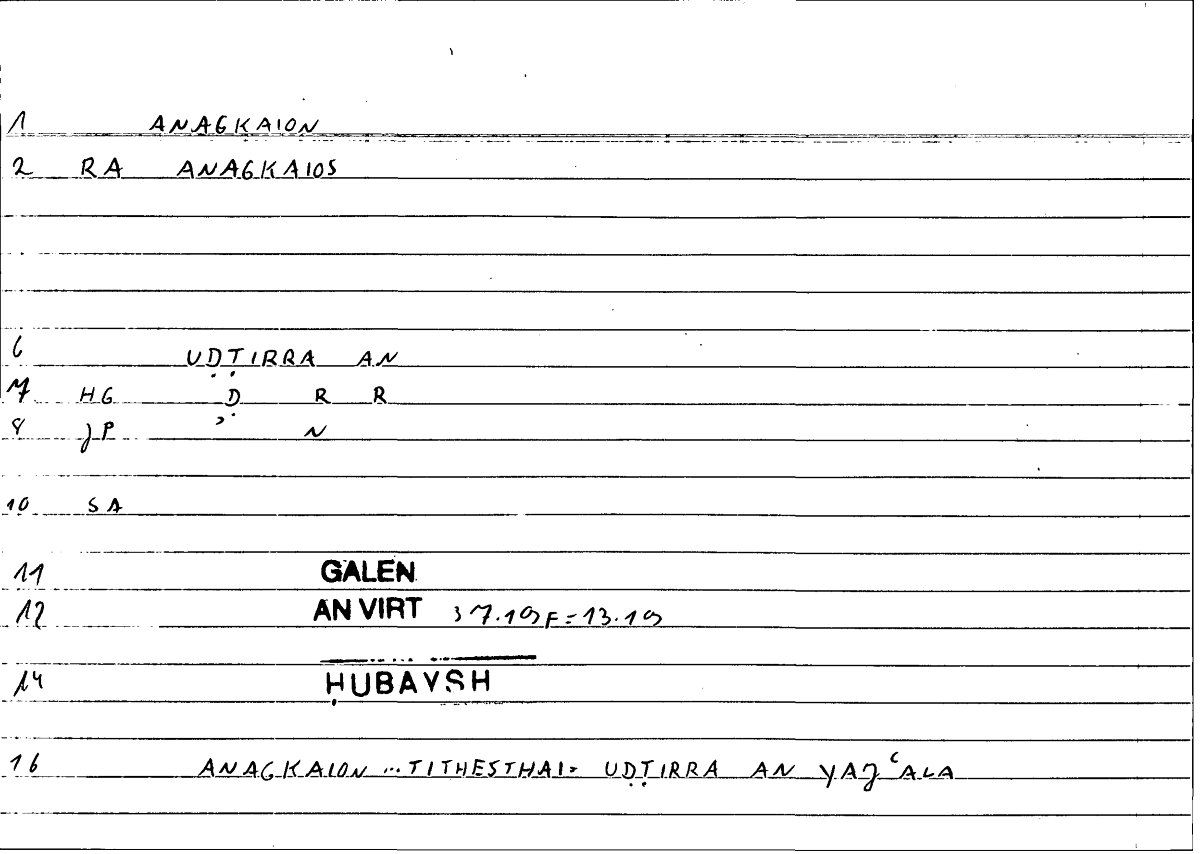 1 ANAGKAION
2 RA ANAGKAIOS
6 UḌṬIRRA AN
7 HG Ḍ R R
8 JP N
10 SA
11 GALEN
12 AN VIRT 37.19F=13.19
14 ḤUBAYSH
16 ANAGKAION ... TITHESTHAI= UḌṬIRRA AN YAJ ʿALA